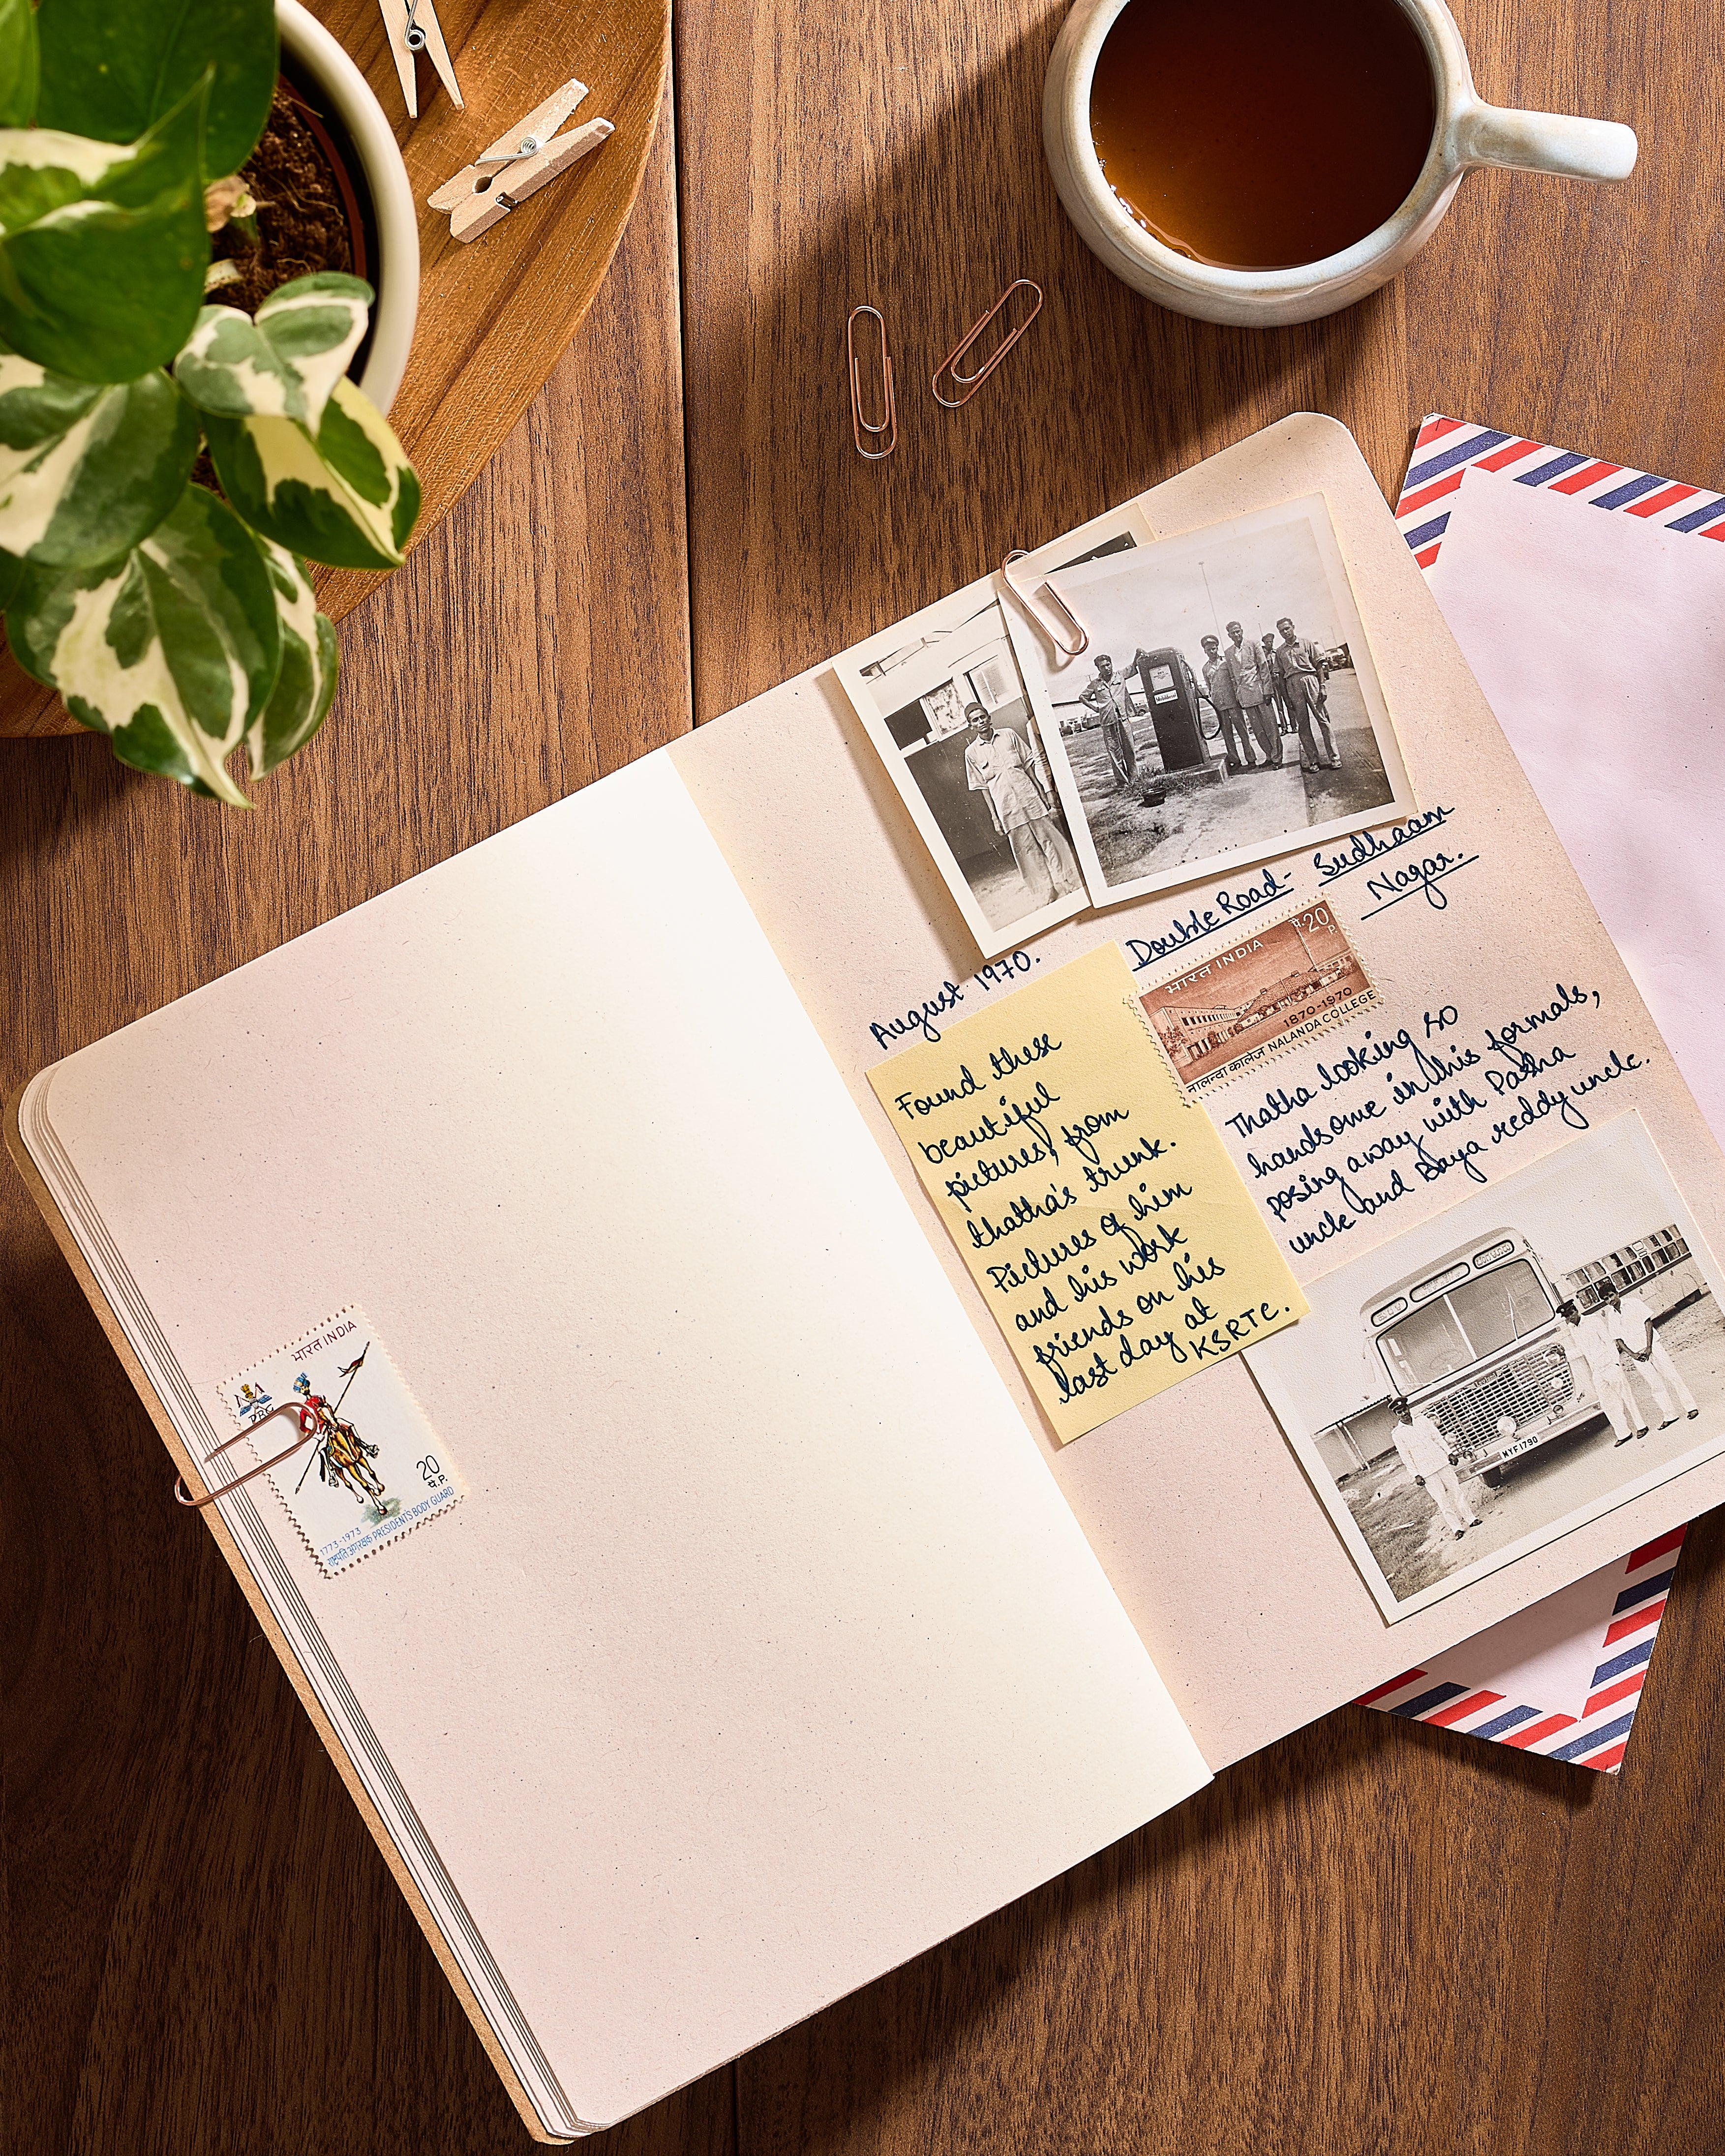 August 1970.
Double Road- Sudhaam
Nagar.
भारत INDIA
प.20
P.
1870-1970
नालन्दा कालेज NALANDA COLLEGE
Found these
beautiful
pictures, from
thatha's trunk.
Pictures of him
and his work
friends on his
last day at
KSRTC.
Thatha looking so
handsome in his formals,
posing away with Pasha
uncle and Baya reddy uncle.
MYF1790
भारत INDIA
PBG
20
प.P.
1773-1973
राष्ट्रपति अंगरक्षक PRESIDENT'S BODY GUARD